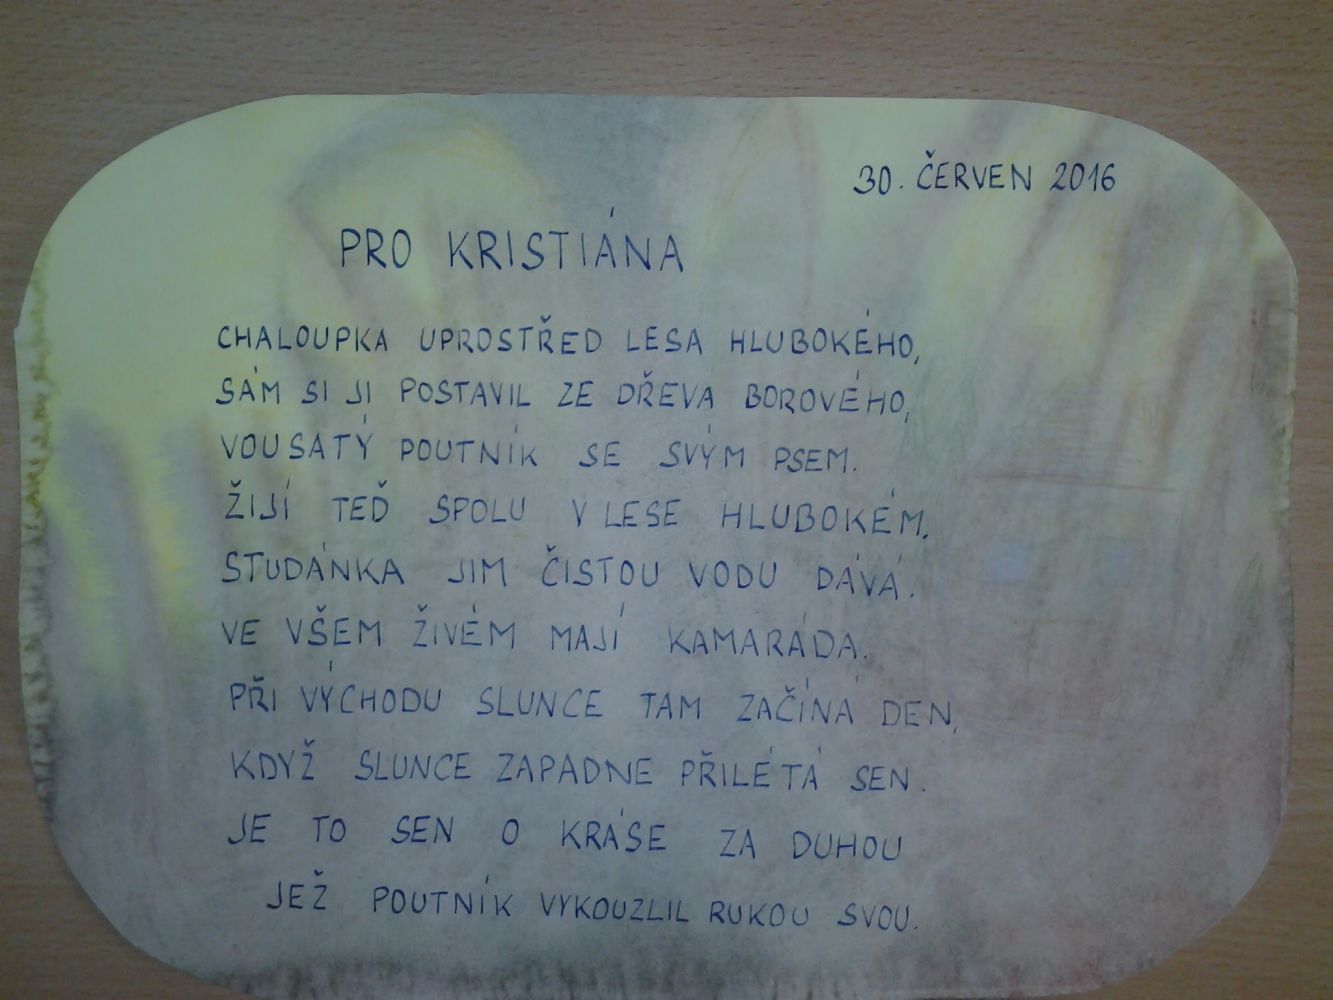 30. ČERVEN 2016
PRO KRISTIÁNA
CHALOUPKA UPROSTŘED LESA HLUBOKÉHO,
SÁM SI JI POSTAVIL ZE DŘEVA BOROVÉHO,
VOUSATÝ POUTNÍK SE SVÝM PSEM.
ŽIJÍ TEĎ SPOLU V LESE HLUBOKÉM.
STUDÁNKA JIM ČISTOU VODU DÁVÁ.
VE VŠEM ŽIVÉM MAJÍ KAMARÁDA.
PŘI VÝCHODU SLUNCE TAM ZAČÍNÁ DEN,
KDYŽ SLUNCE ZAPADNE PŘILÉTÁ SEN.
JE TO SEN O KRÁSE ZA DUHOU
JEŽ POUTNÍK VYKOUZLIL RUKOU SVOU.